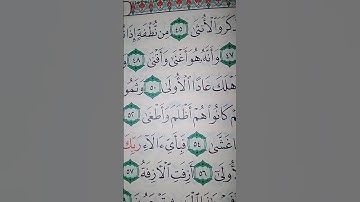 ذَّكَرَ وَٱلْأُنثَىٰ ٤٥ مِن نُّطْفَةٍ إِذَا
٤٧ وَأَنَّهُۥ هُوَ أَغْنَىٰ وَأَقْنَىٰ ٤٨
أَهْلَكَ عَادًا ٱلْأُولَىٰ ٥٠ وَثَمُو
كَانُوا۟ هُمْ أَظْلَمَ وَأَطْغَىٰ ٥٢
غَشَّىٰ ٥٤ فَبِأَىِّ ءَالَآءِ رَبِّكَ
ٱلْأُولَىٰٓ ٥٦ أَزِفَتِ ٱلْأَزِفَةُ ٥٧